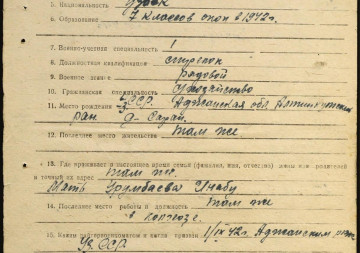 5. Национальность Узбек
6. Образование 7 классов окон в 1942г.
7. Военно-учетная специальность /
8. Должностная квалификация стрелок
9. Военное звание рядовой
10. Гражданская специальность
11. Место рождения УзССР. обл.
рай. д-
12. Последнее место жительства там же
13. Где проживает в настоящее время семья (фамилия, имя, отчество) жены или родителей
и точный их адрес там же
Мать
14. Последнее место работы и должность там же
в колхозе.
15. Каким райвоенкоматом и когда призван 1/IX 42г.
УзССР.